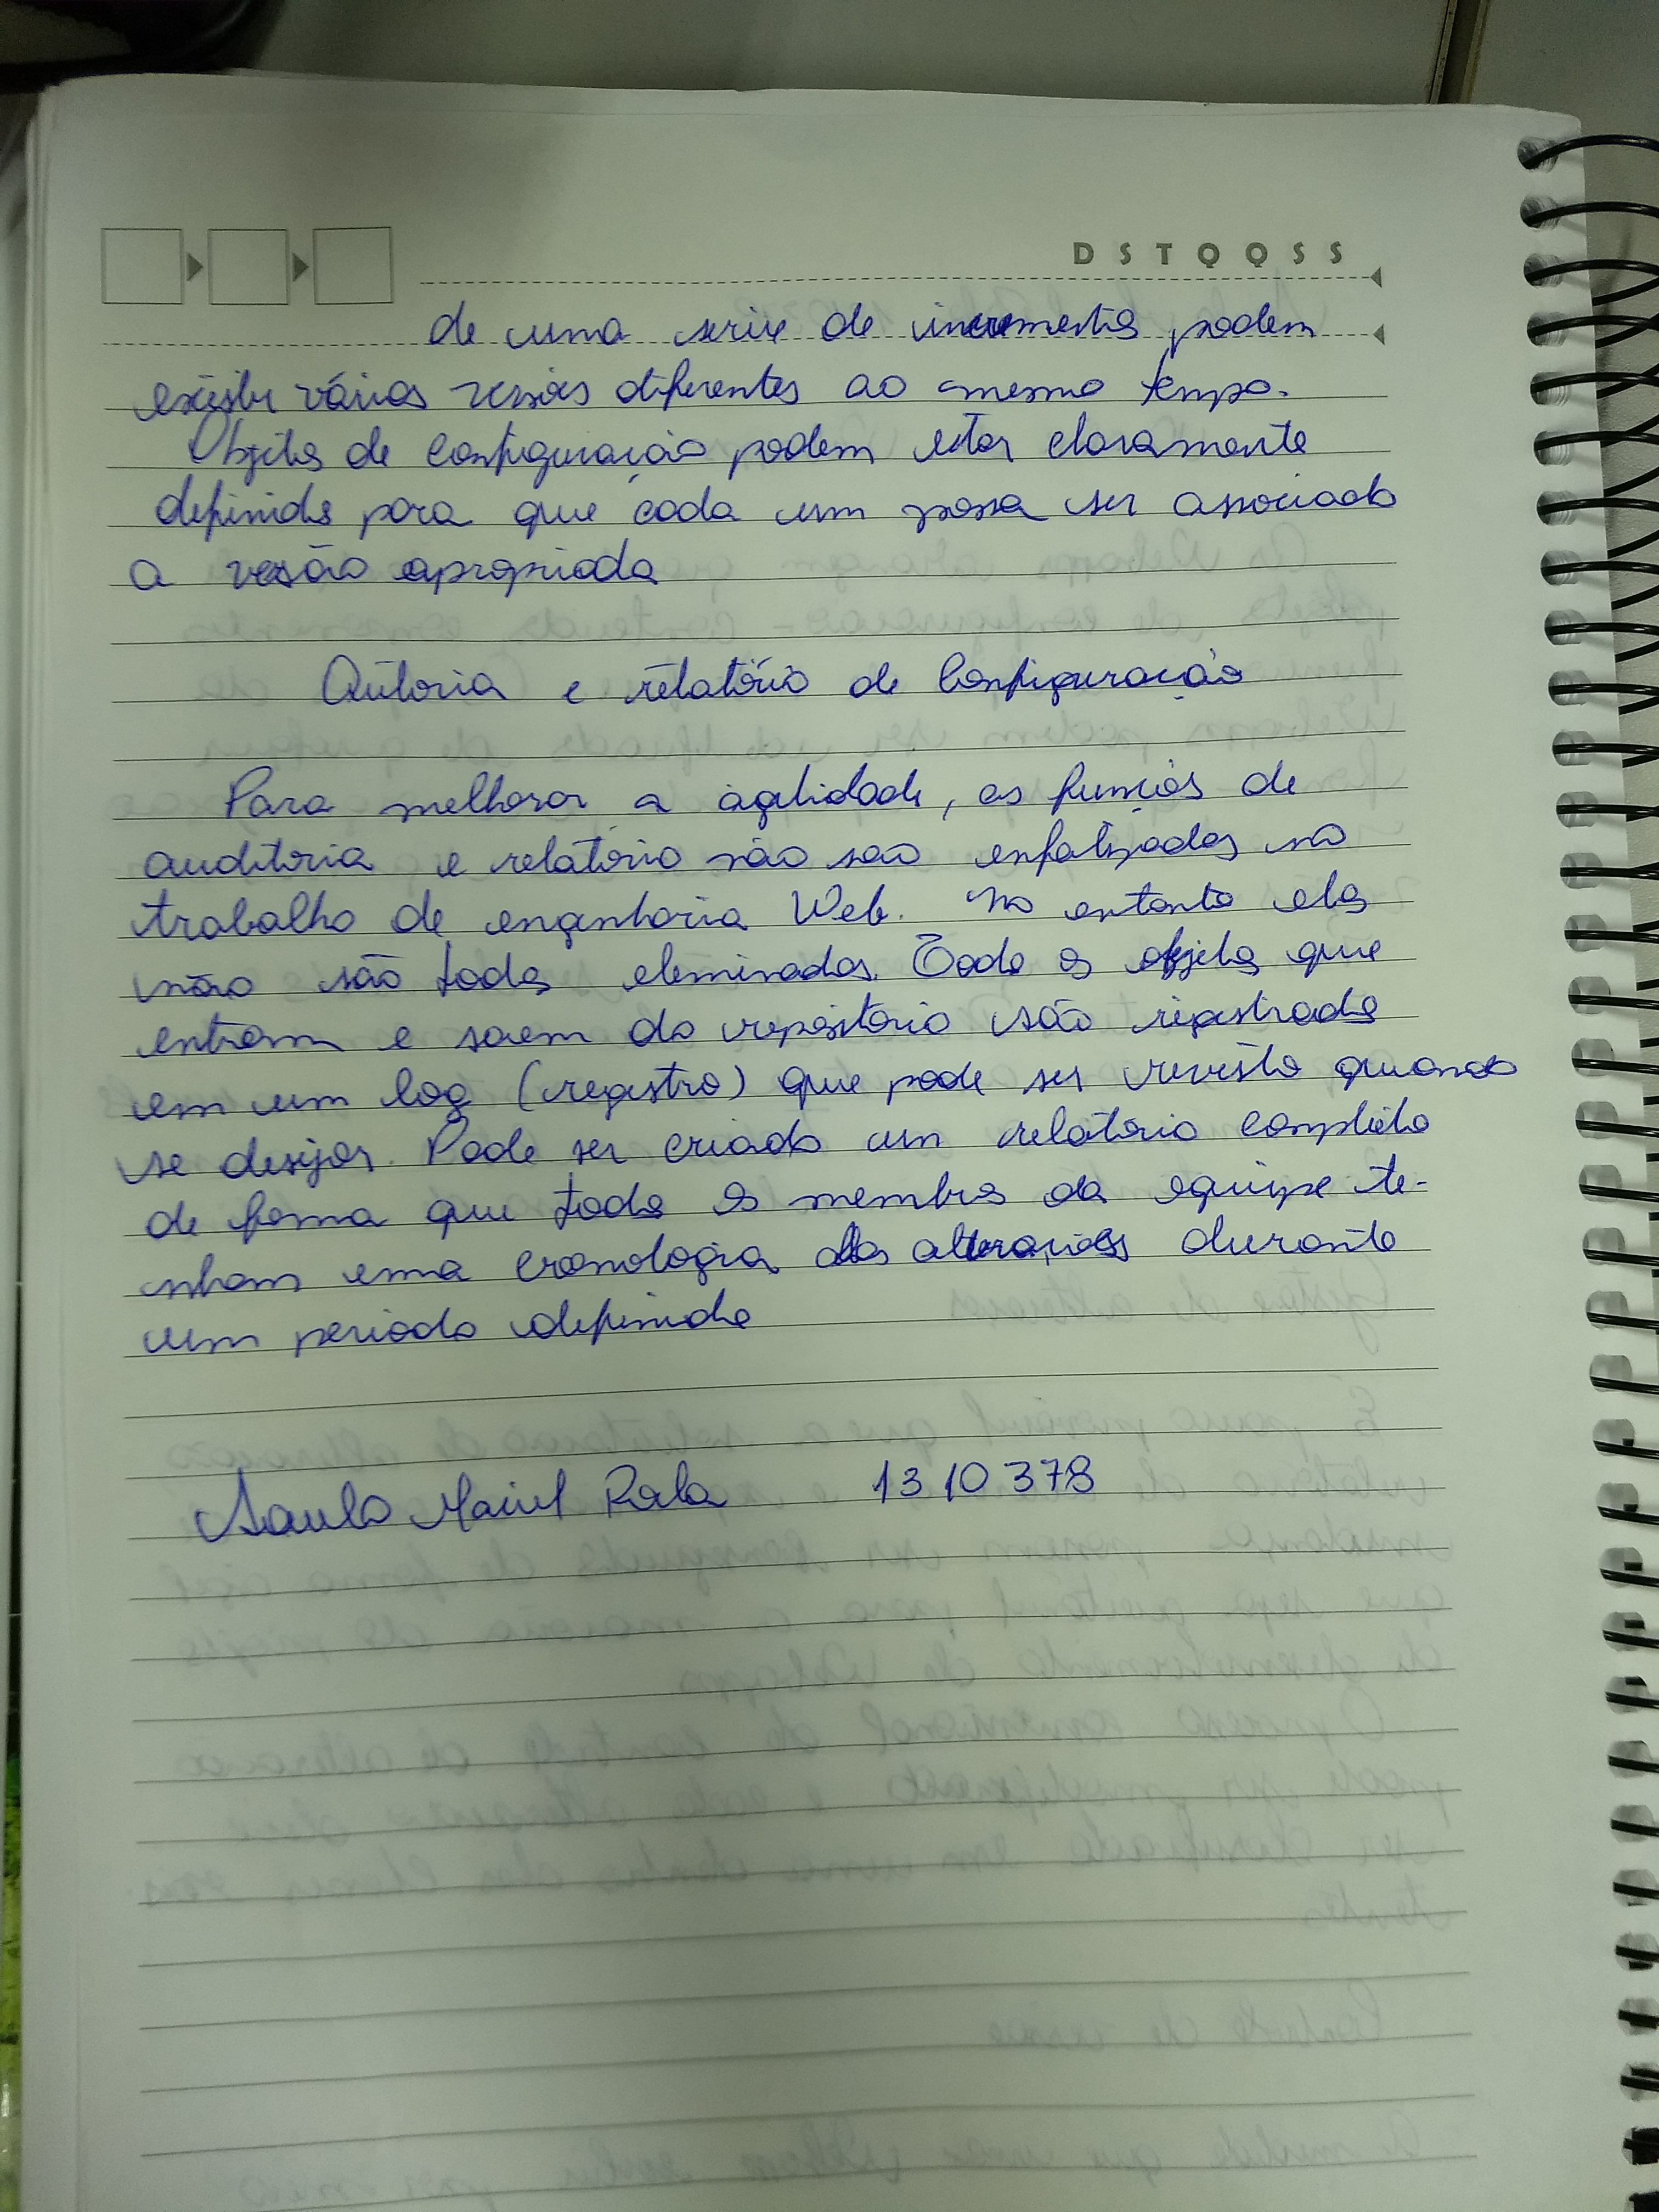 D S T Q Q S S
de uma serie de incrementos podem
existir vários versões diferentes ao mesmo tempo.
Objetos de configuração podem estar claramente
definidos para que cada um possa ser associado
a versão apropriada
e relatório de Configuração
Para melhorar a agilidade, as funções de
auditoria e relatório não são enfatizados no
trabalho de engenharia Web. No entanto elas
não são todas eleminadas. Todo os objetos que
entram e saem do repositório são registrados
em um log (registro) que pode ser revisto quando
se desejar. Pode ser criado um relatório completo
de forma que todos os membros da equipe te-
nham uma cronologia das alterações durante
um periodo definido
Saulo Maciel 1310378